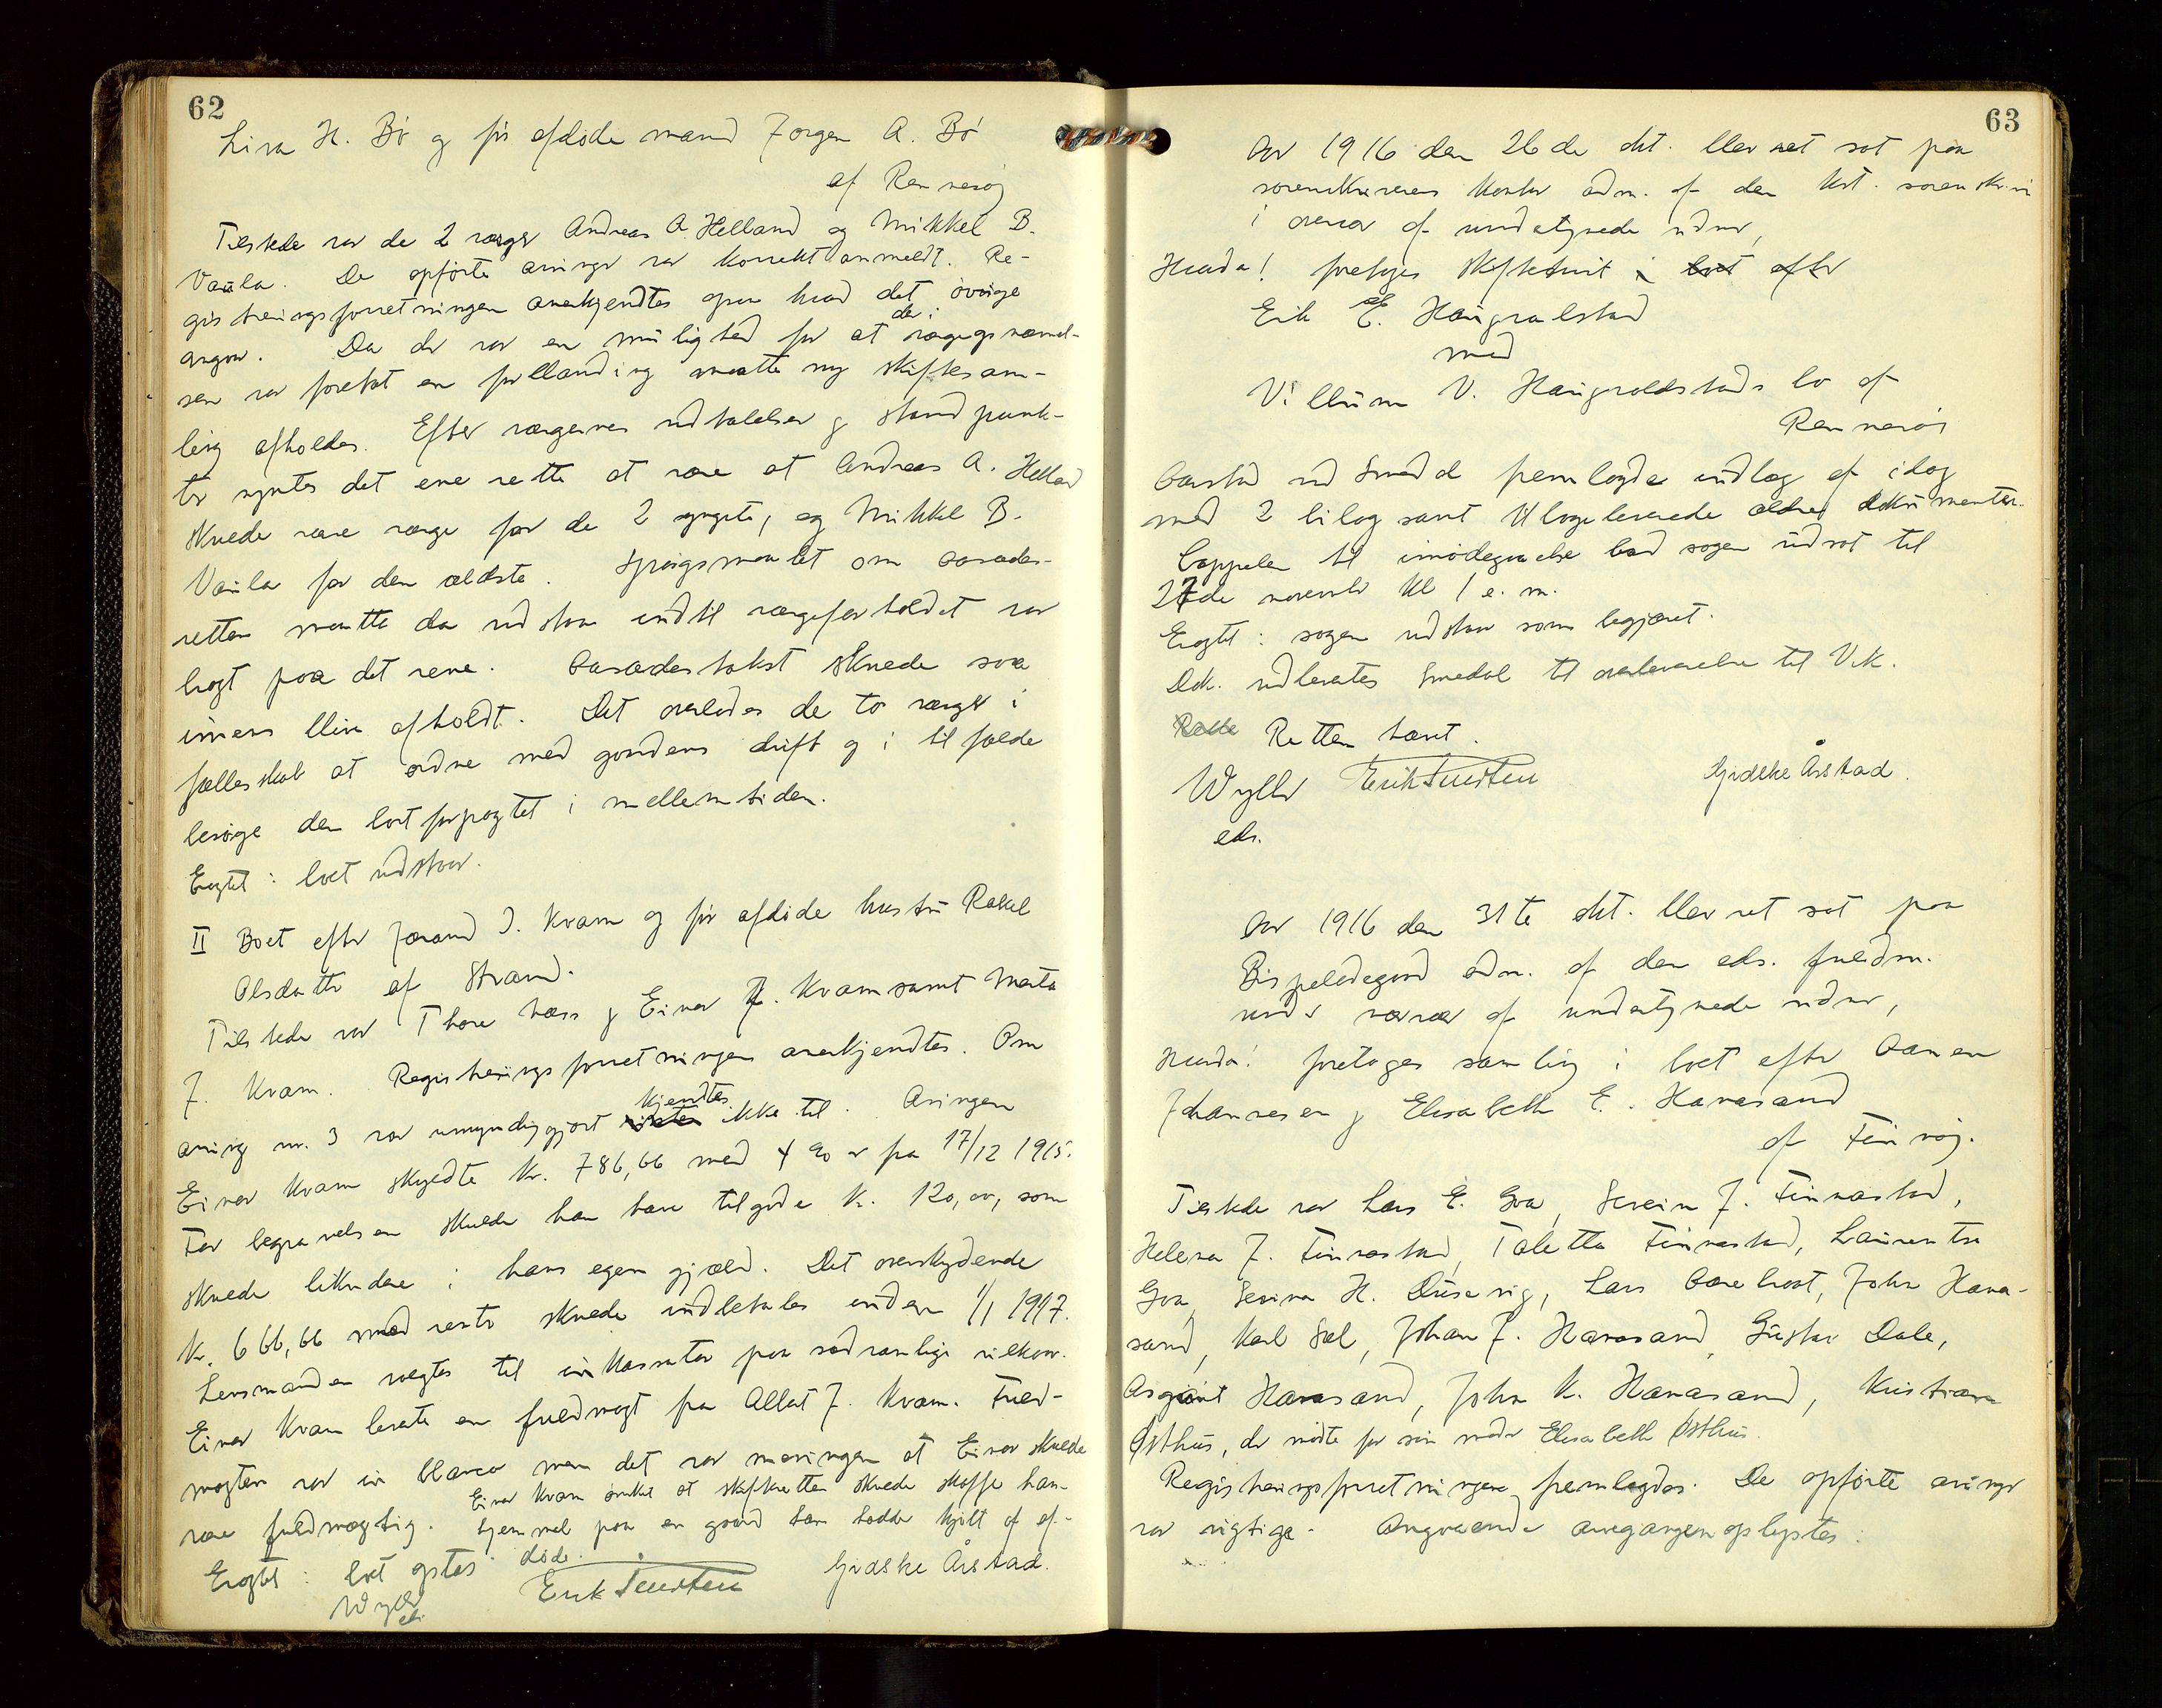 62
Lisa H. Bø og før afdøde mand Jorgen A. Bø
af Rennesøy
Tilstede var de 2 værger Andreas A. Helland og Mikkel B.
Vaula. De opførte arvinger var korrekt anmeldt. Re-
gistreringsforretningen anerkjendtes ogsaa hvad det øvrige
angaar. Da der var en mulighed for at der i værgeopnævnel-
sen var foretat en forblanding maatte ny skiftesam-
ling afholdes. Efter værgernes udtalelser og standpunk-
ter syntes det ene rette at være at Andreas A. Helland
skulde være værge for de 2 yngste, og Mikkel B.
Vaula for den ældste. Spørgsmaalet om aasædes-
retten maatte da udstaa indtil værgeforholdet var
bragt paa det rene. Aasædestakst skulde saa
imens blive afholdt. Det overlodes de to værger i
fællesskab at ordne med gaardens drift og i tilfælde
besørge den bortforpagtet i mellemtiden.
Eragtet: boet udstaar.
II Boet efter Jorand J. Kvam og før afdøde hustru Rakel
Olsdatter af Strand.
Tilstede var Thore Næss og Einar J. Kvam samt Marta
J. Kvam. Registreringsforretningen anerkjendtes. Om
arving nr. 3 var umyndiggjort vistes kjendtes ikke til. Arvingen
Einar Kvam skyldte kr. 786,66 med 4 % r fra 17/12 1915.
For begravelsen skulde han have tilgode kr. 120,00, som
skulde likvidere i hans egen gjæld. Det overskydende
kr. 666,66 med renter skulde indbetales inden 1/1 1917.
Lensmanden valgtes til inkassator paa sædvanlige vilkaar.
Einar Kvam leverte en fuldmagt fra Allat J. Kvam. Fuld-
magten var in blanco men det var meningen at Einar skulde
være fuldmægtig. Einar Kvam ønsket at skifteretten skulde skaffe ham
hjemmel paa en gaard han hadde kjøpt af af-
døde.
Eragtet: boet opstes
Wyller
eds.
Erik Tuesteen
Gjedske Årstad.
63
Aar 1916 den 26de okt. blev ret sat paa
sorenskriverens kontor adm. af den kst. sorenskriver
i overvær af undertegnede vidner,
Hvorda! foretoges skiftetvist i boet efter
Erik E. Haugvalstad
med
Villum V. Haugvaldstads bo af
Rennesøi
Aarstad ved Smedal fremlagde indlæg af idag
med 2 bilag samt tilbageleverede ældre dokumenter.
Cappelen til imødegaaelse bad sagen udsat til
27de november kl 1 e. m.
Eragtet: sagen udstaar som begjæret.
Dok. udleveres Smedal til overleverelse til V.K.
Rette Retten hævet.
Wyller
eds.
Erik Tuesteen
Gjedske Årstad.
Aar 1916 den 31te okt. blev ret sat paa
Bispeladegaard adm. af den eds. fuldm.
under nærvær af undertegnede vidner,
Hvorda! foretoges samling i boet efter Aanen
Johannesen og Elisabeth E. Hanasand
af Finnøy.
Tilstede var Lars E. Goa, Severin J. Finnastad,
Helena J. Finnastad, Taletta Finnastad, Laurentse
Goa, Serina H. Dusavig, Lars Aarebrot, John Hana-
sand, Karl Sel, Johan J. Hanasand, Gustav Dale,
Asgaut Hanasand, John K. Hanasand, Kristian
Østhus, der mødte for sin moder Elisabeth Østhus.
Registreringsforretningen fremlagdes. De opførte arvinger
var rigtige. Angaaende arvegangen oplystes: